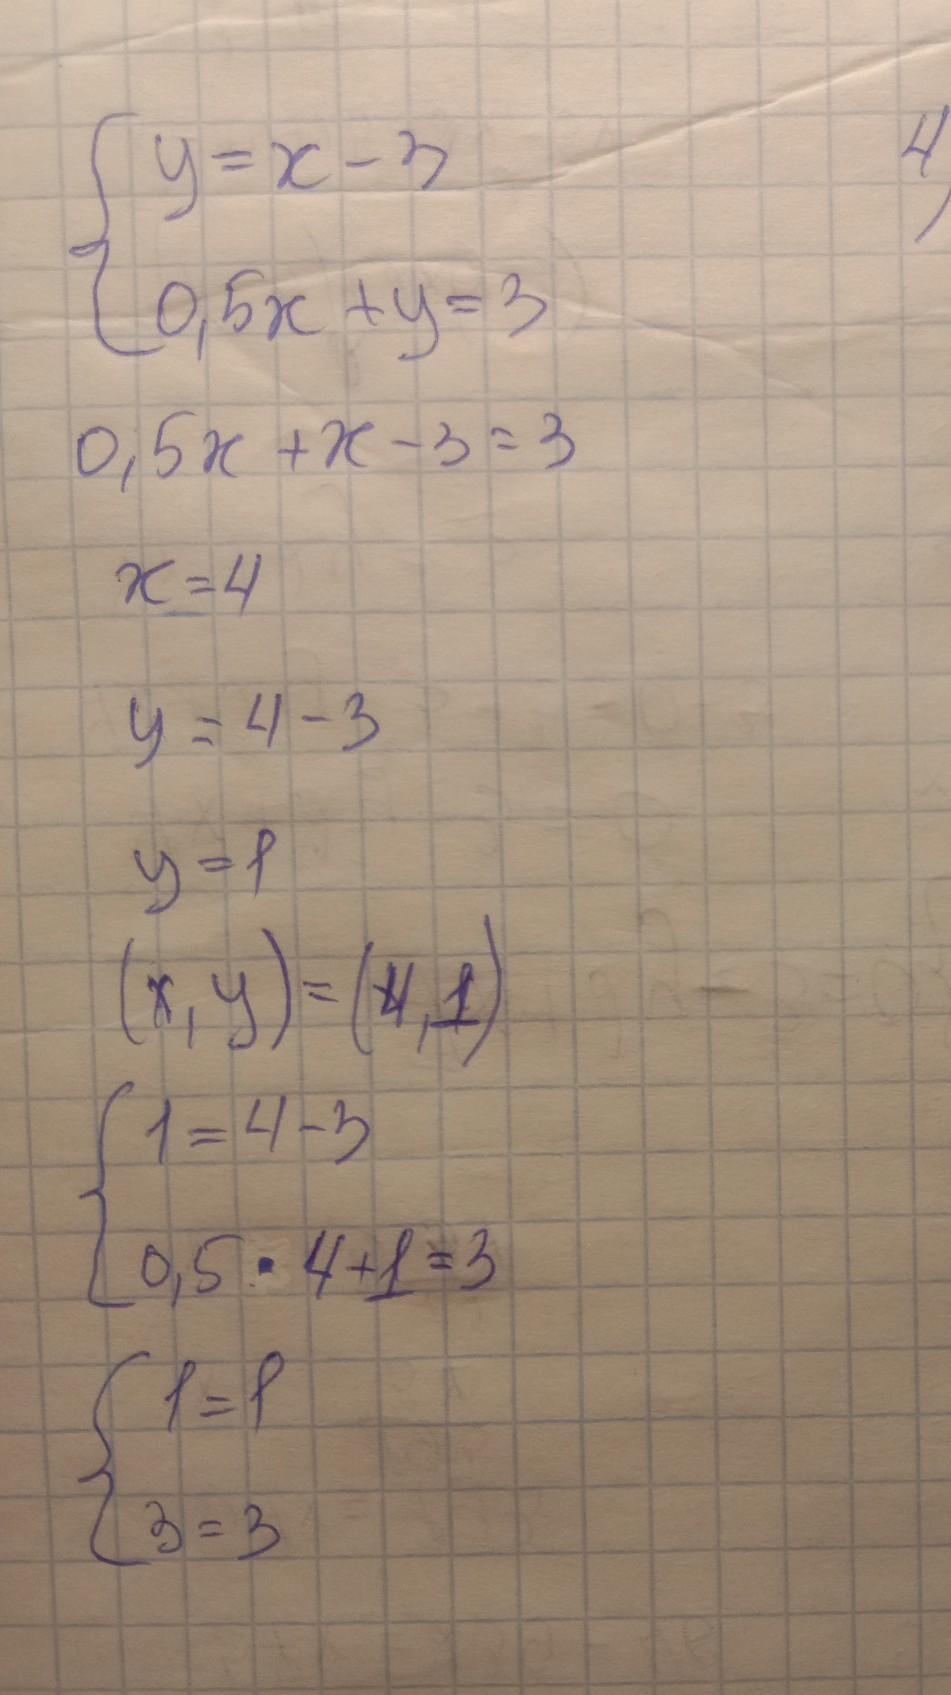 y = x - 3
4)
0,5x + y = 3
0,5x + x - 3 = 3
x = 4
y = 4 - 3
y = 1
(x, y) = (4, 1)
1 = 4 - 3
0,5 · 4 + 1 = 3
1 = 1
3 = 3